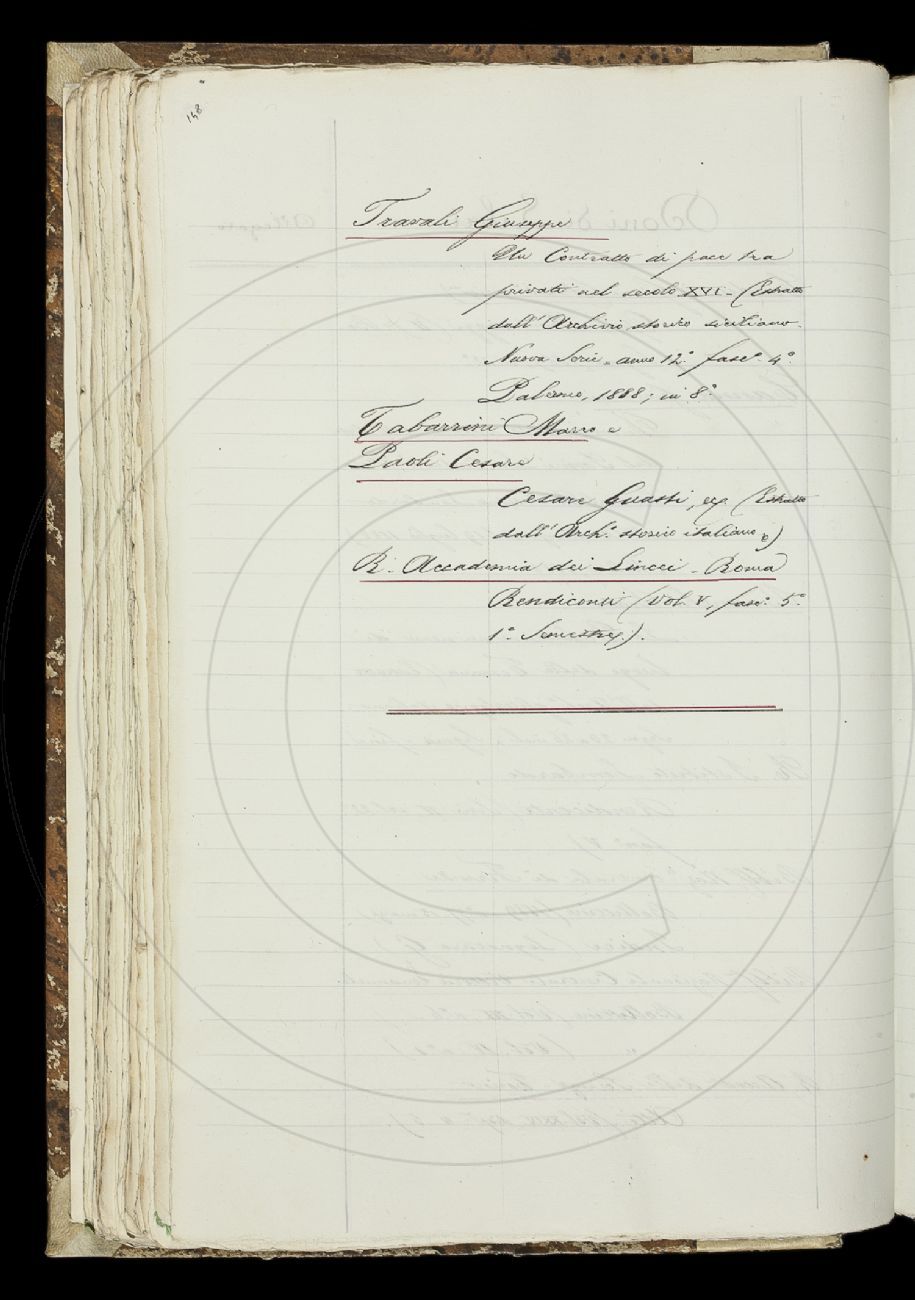 148
Travali Giuseppe
Un Contratto di pace tra
privati nel secolo XVI - (Estratto
dall' Archivio storico siciliano.
Nuova Serie - anno 12.° fasc.° 4.°
Palermo, 1888; in 8.°
Tabarrini Marco e
Paoli Cesare
Cesare Guasti, (Estratto
dall' Arch.° storico italiano)
R. Accademia dei Lincei - Roma
Rendiconti (Vol. V, fasc.° 5.°
1.° Semestre).